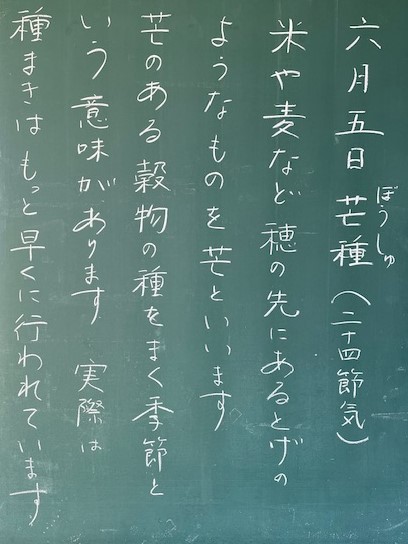 六月五日 芒種（二十四節気）
ぼうしゅ
米や麦など 穂の先にあるとげの
ようなものを芒といいます
芒のある穀物の種をまく季節と
いう意味があります 実際は
種まきは もっと早くに行われています